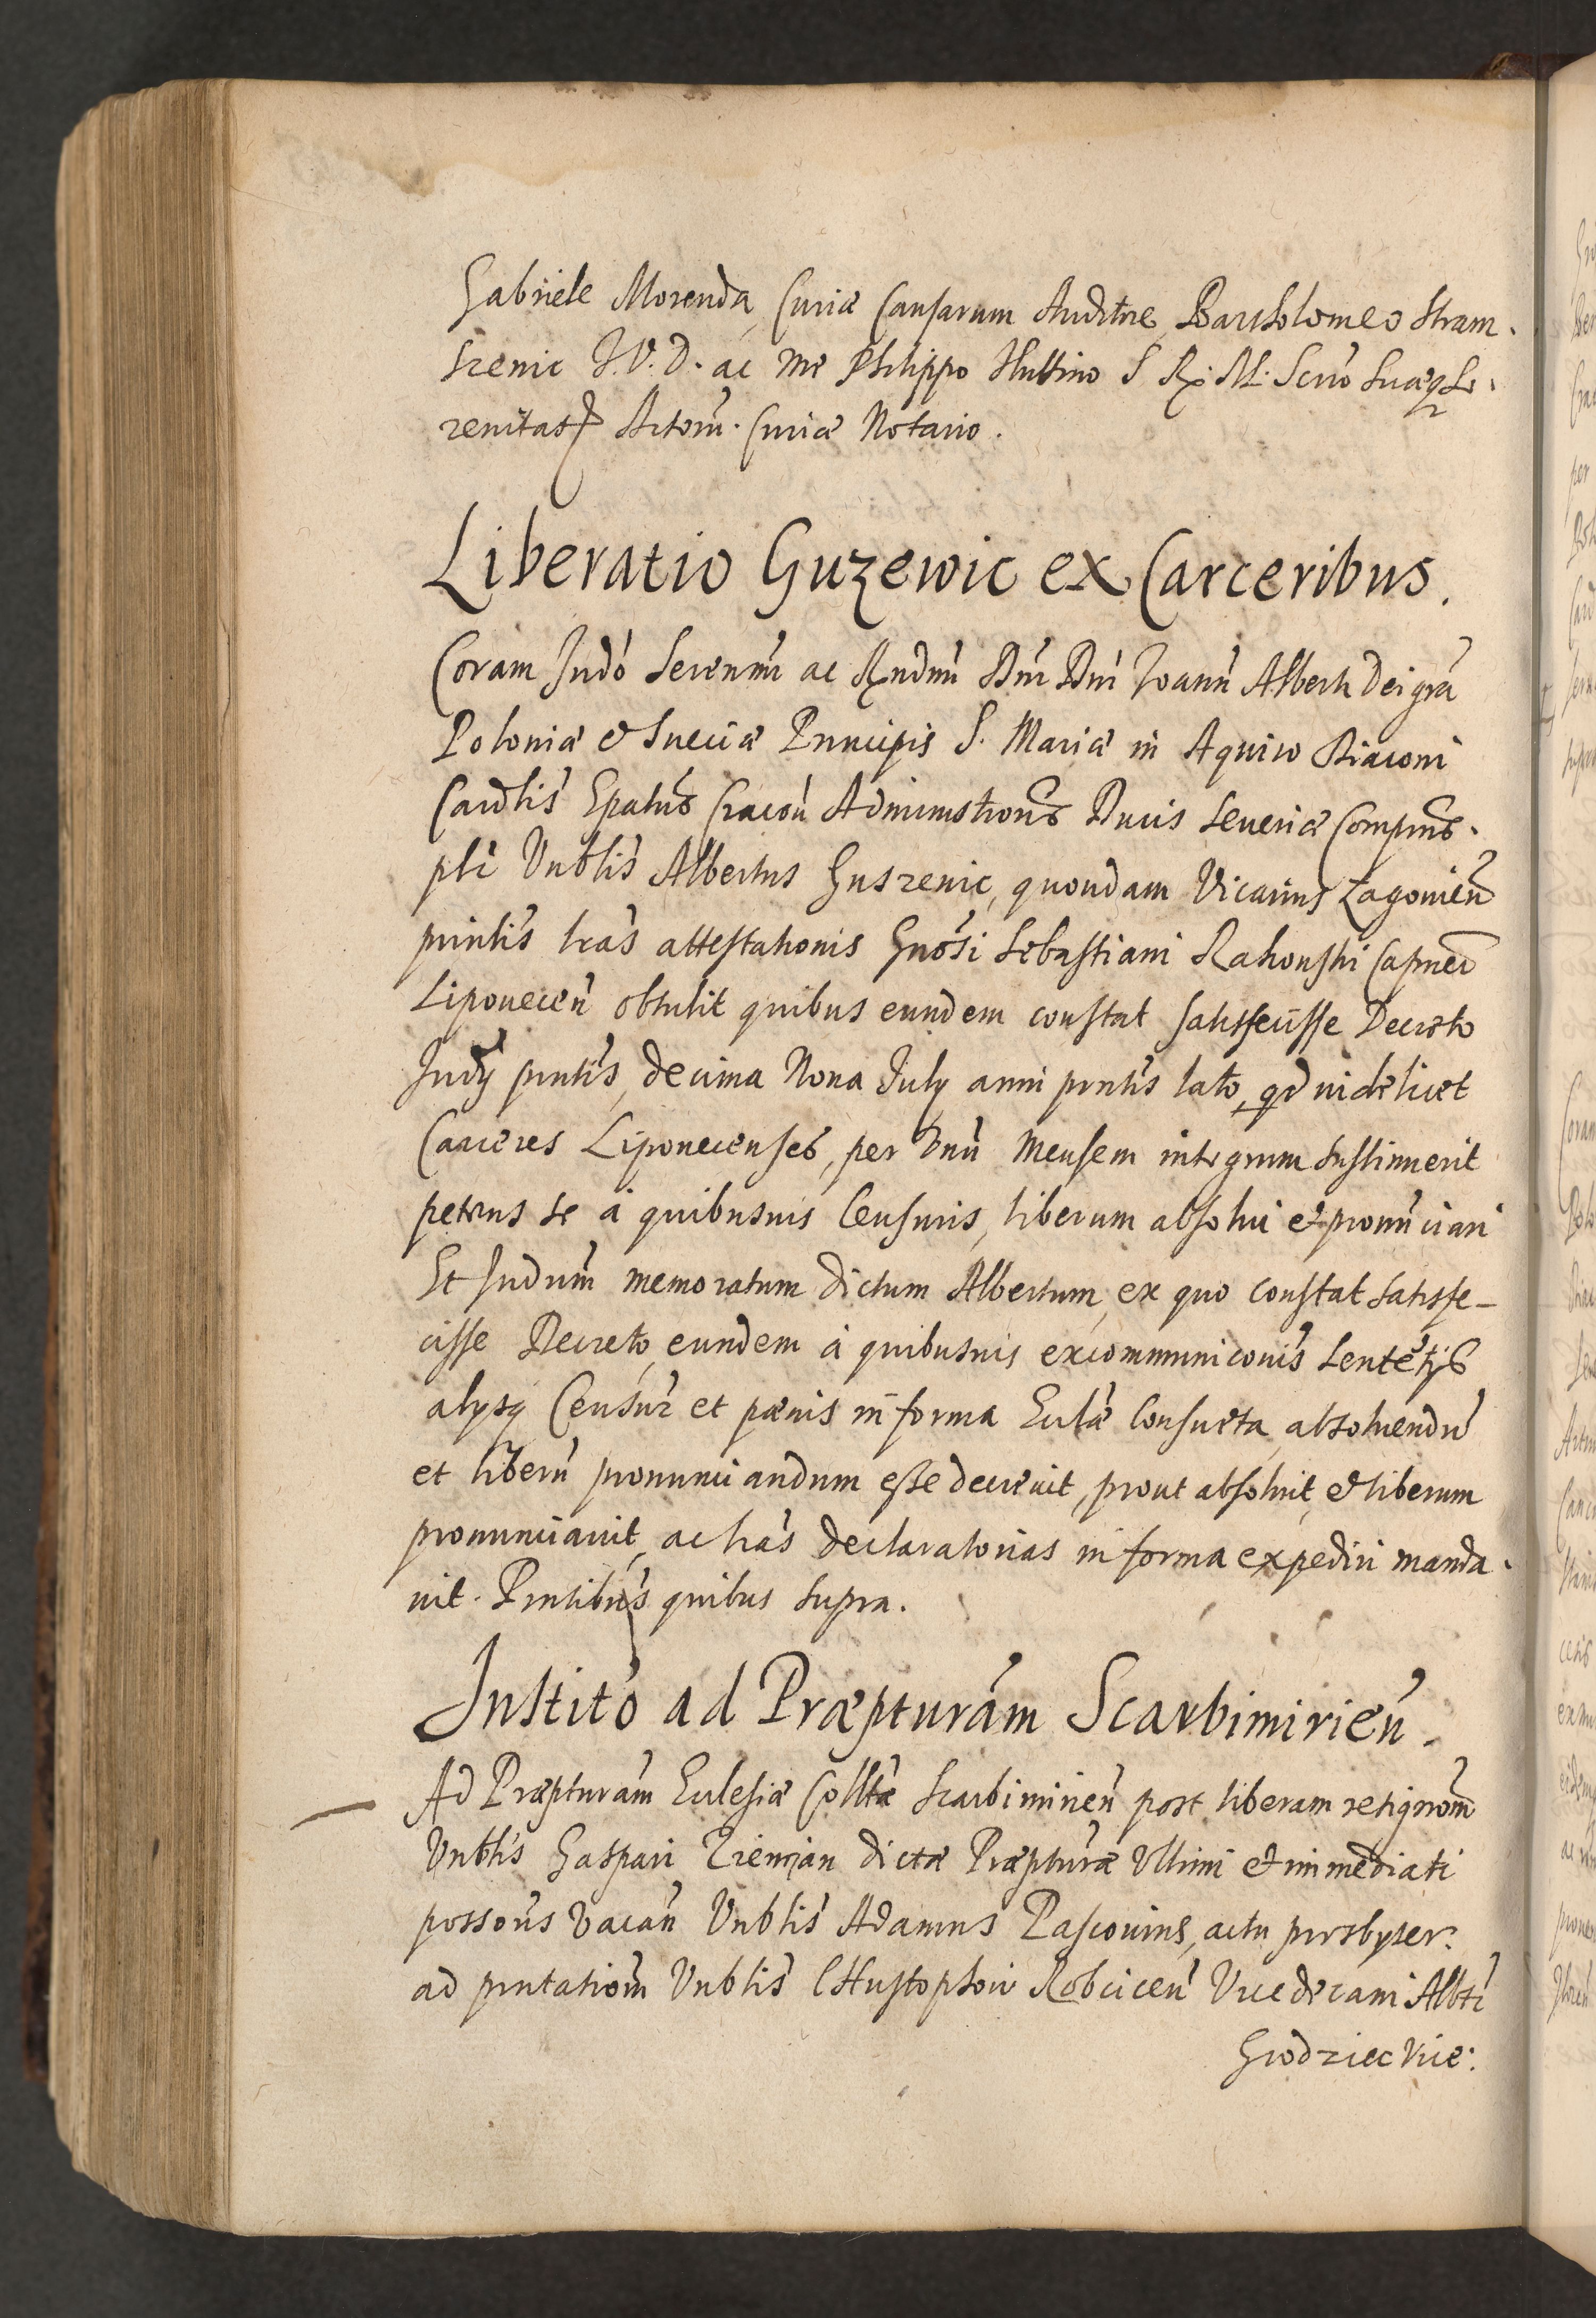 Gabriele Morenda, Curiæ Causarum Auditore, Bartholomeo Stram-
szenic J.V.D. ac me Philippo Huttino S R. M. Scrio Suæq Se-
renitas Actorū. Curiæ Notario.
Liberatio Guzewic ex Carceribus.
Coram Judō Serenmi ac Rndmi Dni Dni Joann Alberti Dei grā
Poloniæ et Sueciæ Principis S. Mariæ in Aquiro Diaconi
Cardlis Epatus Cracoū Administrons Ducis Seueriæ Comprns.
plr Vnblis Albertus Guszenic, quondam Vicarius Zagoınieñ
printis lrās attestationis Gnosi Sebastiani Rakouski Capnei
Lipouecen obtulit quibus eundem constat satisfecisse Decreto
Judij pntis, decima Nona July anni pntis lato, qd videlicet
Carceres Lipouecenses, per Vnū Mensem integrum sustinuerit
petens se à quibusuis Censuris, liberum absolui et pronūciari
Et Judium memoratum dictum Albertum, ex quo constat satisfe-
cisse Decreto, eundem à quibusuis excommuniconis Sentētijs
alysq Censur et pænis in forma Eccłæ Consueta, absoluendū
et liberū pronunciandum esse decreuit, prout absoluit, et liberum
pronunciauit, ac lrās declaratorias in forma expediri manda-
uit. Pntibus quibus supra.
Institō ad Præpturam Scarbimirieñ.
Ad Præpturam Ecclesiæ Colltæ Scarbimirień post liberam resignom
Vnblis Gaspari Ziemian dictæ Præpturæ Vltimi et immediati
possoris Vacan Vnblis Adamus Pascouius, actu presbyter.
ad pntationem Vnblis CHristophori Robcicen Vicedecani Albti
Grodziec Vice: